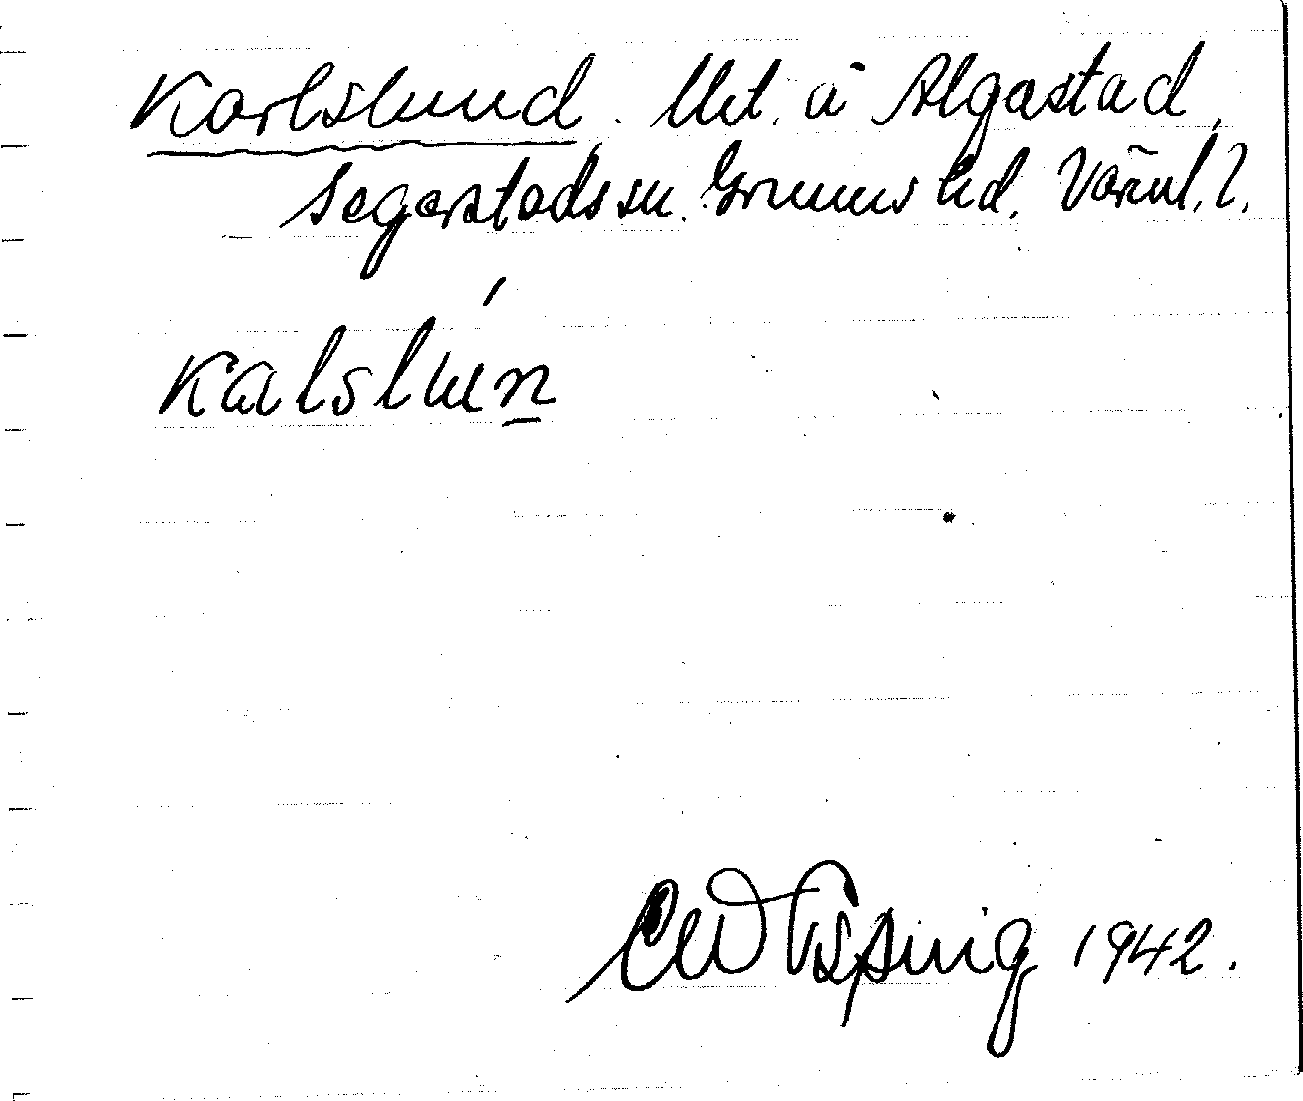 Karlslund. Utt. å Algastad,
Segerstads sn. Grums hd. Värml. l.
kalslun
1942.